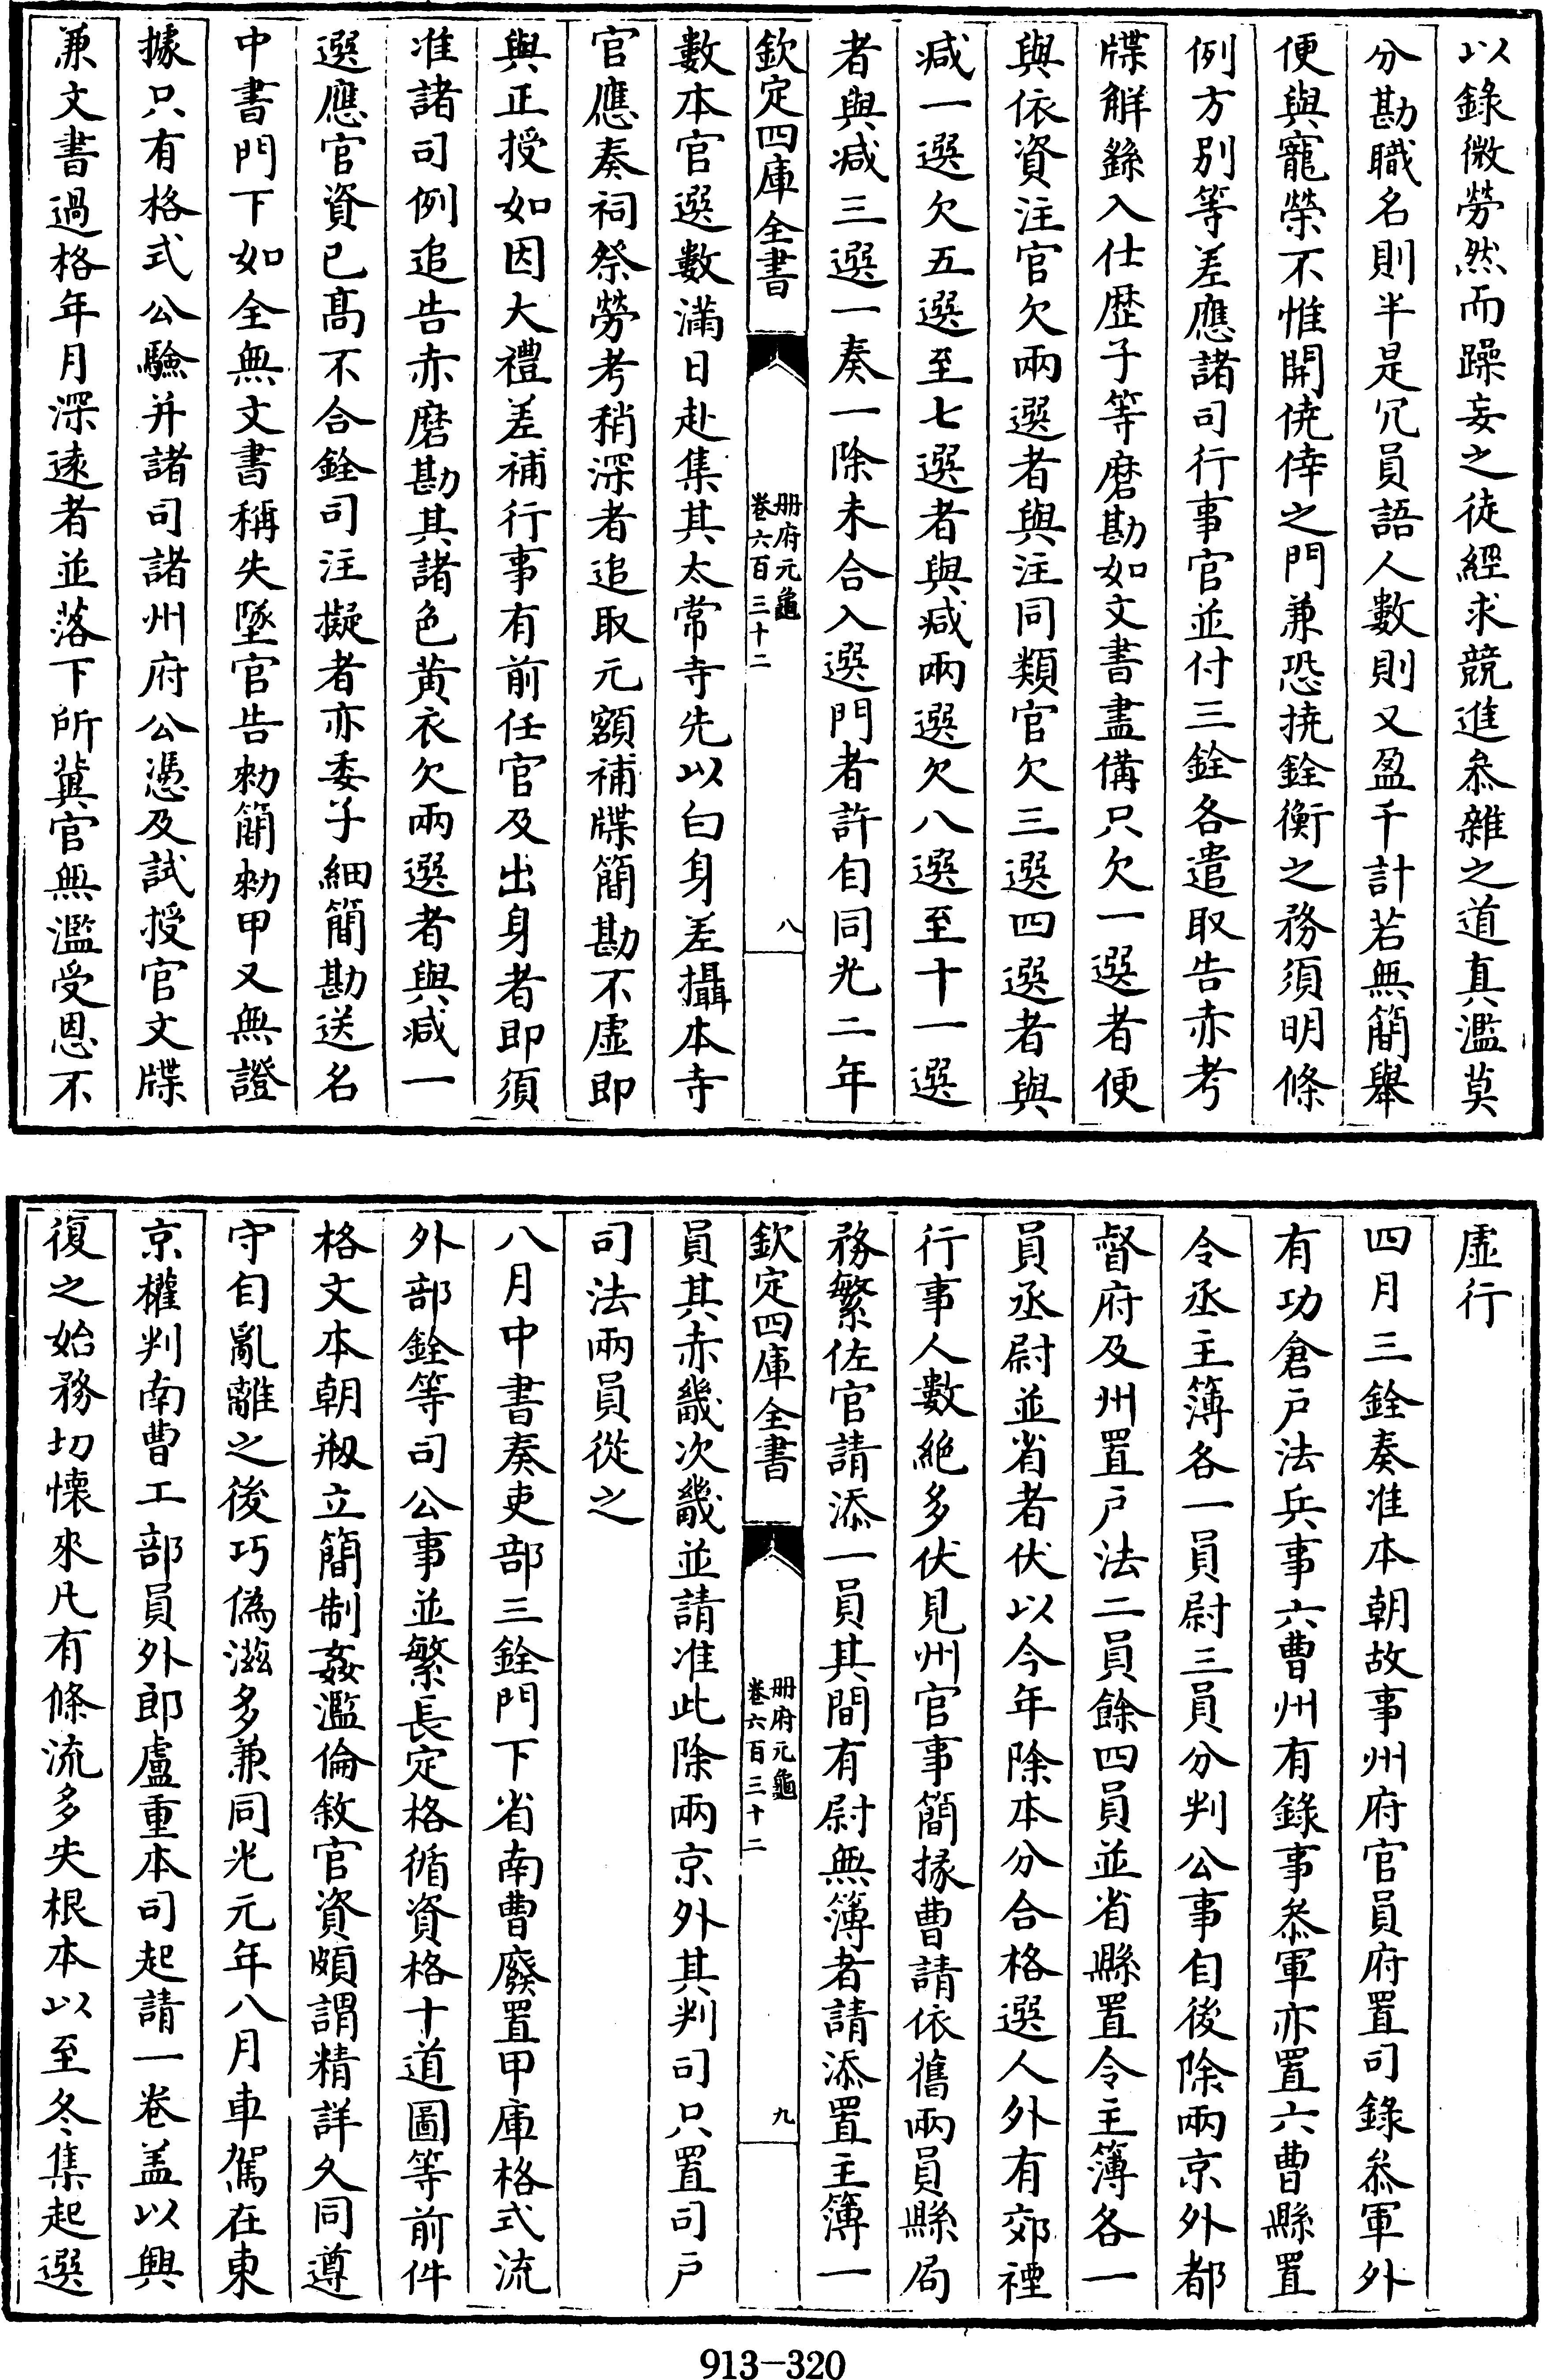 以錄微勞然而躁妄之徒經求競進叅雜之道真濫莫
分勘職名則半是冗員語人數則又盈千計若無簡舉
便與寵榮不惟開僥倖之門兼恐撓銓衡之務須明條
例方別等差應諸司行事官並付三銓各遣取告赤考
牒解繇入仕歴子等磨勘如文書盡備只欠一選者便
與依資注官欠兩選者與注同類官欠三選四選者與
减一選欠五選至七選者與减兩選欠八選至十一選
者與减三選一奏一除未合入選門者許自同光二年
欽定四庫全書
册府元龜
卷六百三十二
八
數本官選數滿日赴集其太常寺先以白身差攝本寺
官應奏祠祭勞考稍深者追取元額補牒簡勘不虛即
與正授如因大禮差補行事有前任官及出身者即須
准諸司例追告赤磨勘其諸色黄衣欠兩選者與减一
選應官資已髙不合銓司注擬者亦委子細簡勘送名
中書門下如全無文書稱失墜官告勅簡勅甲又無證
據只有格式公驗并諸司諸州府公憑及試授官文牒
兼文書過格年月深遠者並落下所冀官無濫受恩不
虛行
四月三銓奏准本朝故事州府官員府置司錄叅軍外
有功倉戶法兵事六曹州有錄事叅軍亦置六曹縣置
令丞主簿各一員尉三員分判公事自後除兩京外都
督府及州置戶法二員餘四員並省縣置令主簿各一
員丞尉並省者伏以今年除本分合格選人外有郊禋
行事人數絶多伏見州官事簡掾曹請依舊兩員縣局
務繁佐官請添一員其間有尉無簿者請添置主簿一
欽定四庫全書
册府元龜
卷六百三十二
九
員其赤畿次畿並請准此除兩京外其判司只置司戶
司法兩員從之
八月中書奏吏部三銓門下省南曹廢置甲庫格式流
外部銓等司公事並繁長定格循資格十道圖等前件
格文本朝剏立簡制姦濫倫敘官資頗謂精詳久同遵
守自亂離之後巧偽滋多兼同光元年八月車駕在東
京權判南曹工部員外郎盧重本司起請一卷盖以興
復之始務切懷來凡有條流多失根本以至冬集起選
913-320